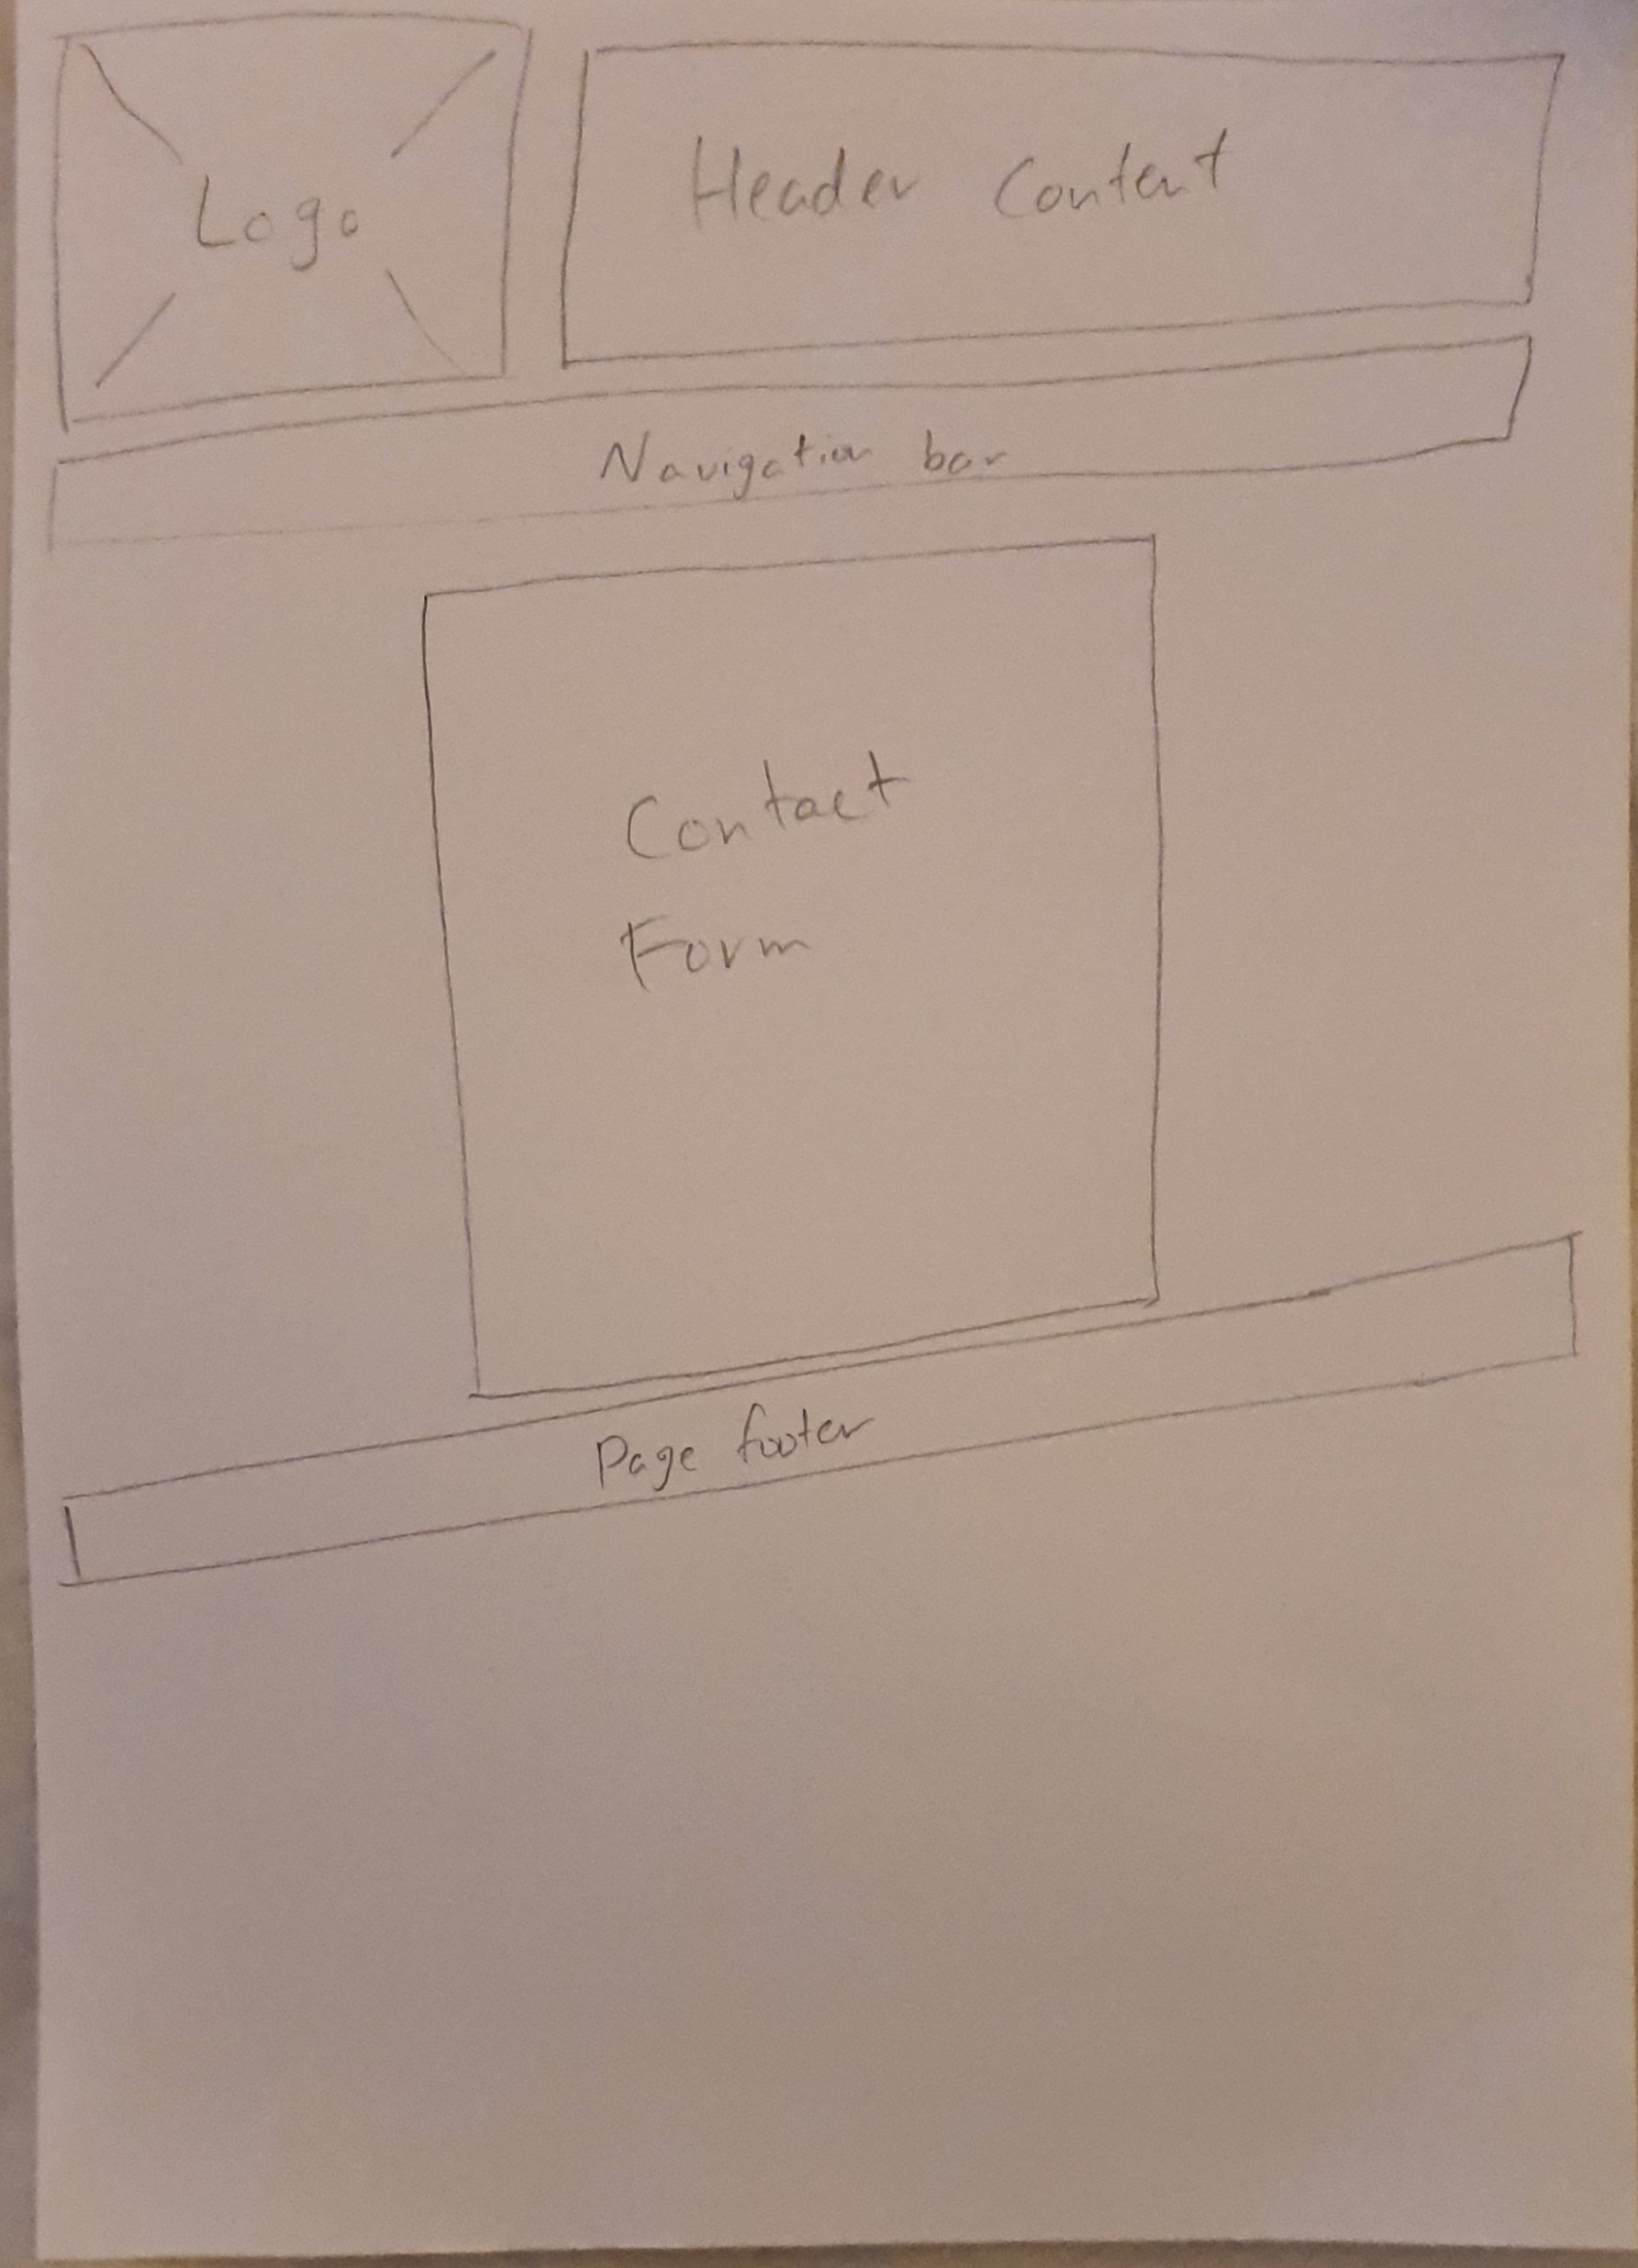 Logo
Header Content
Navigation bar
Contact
Form
Page footer